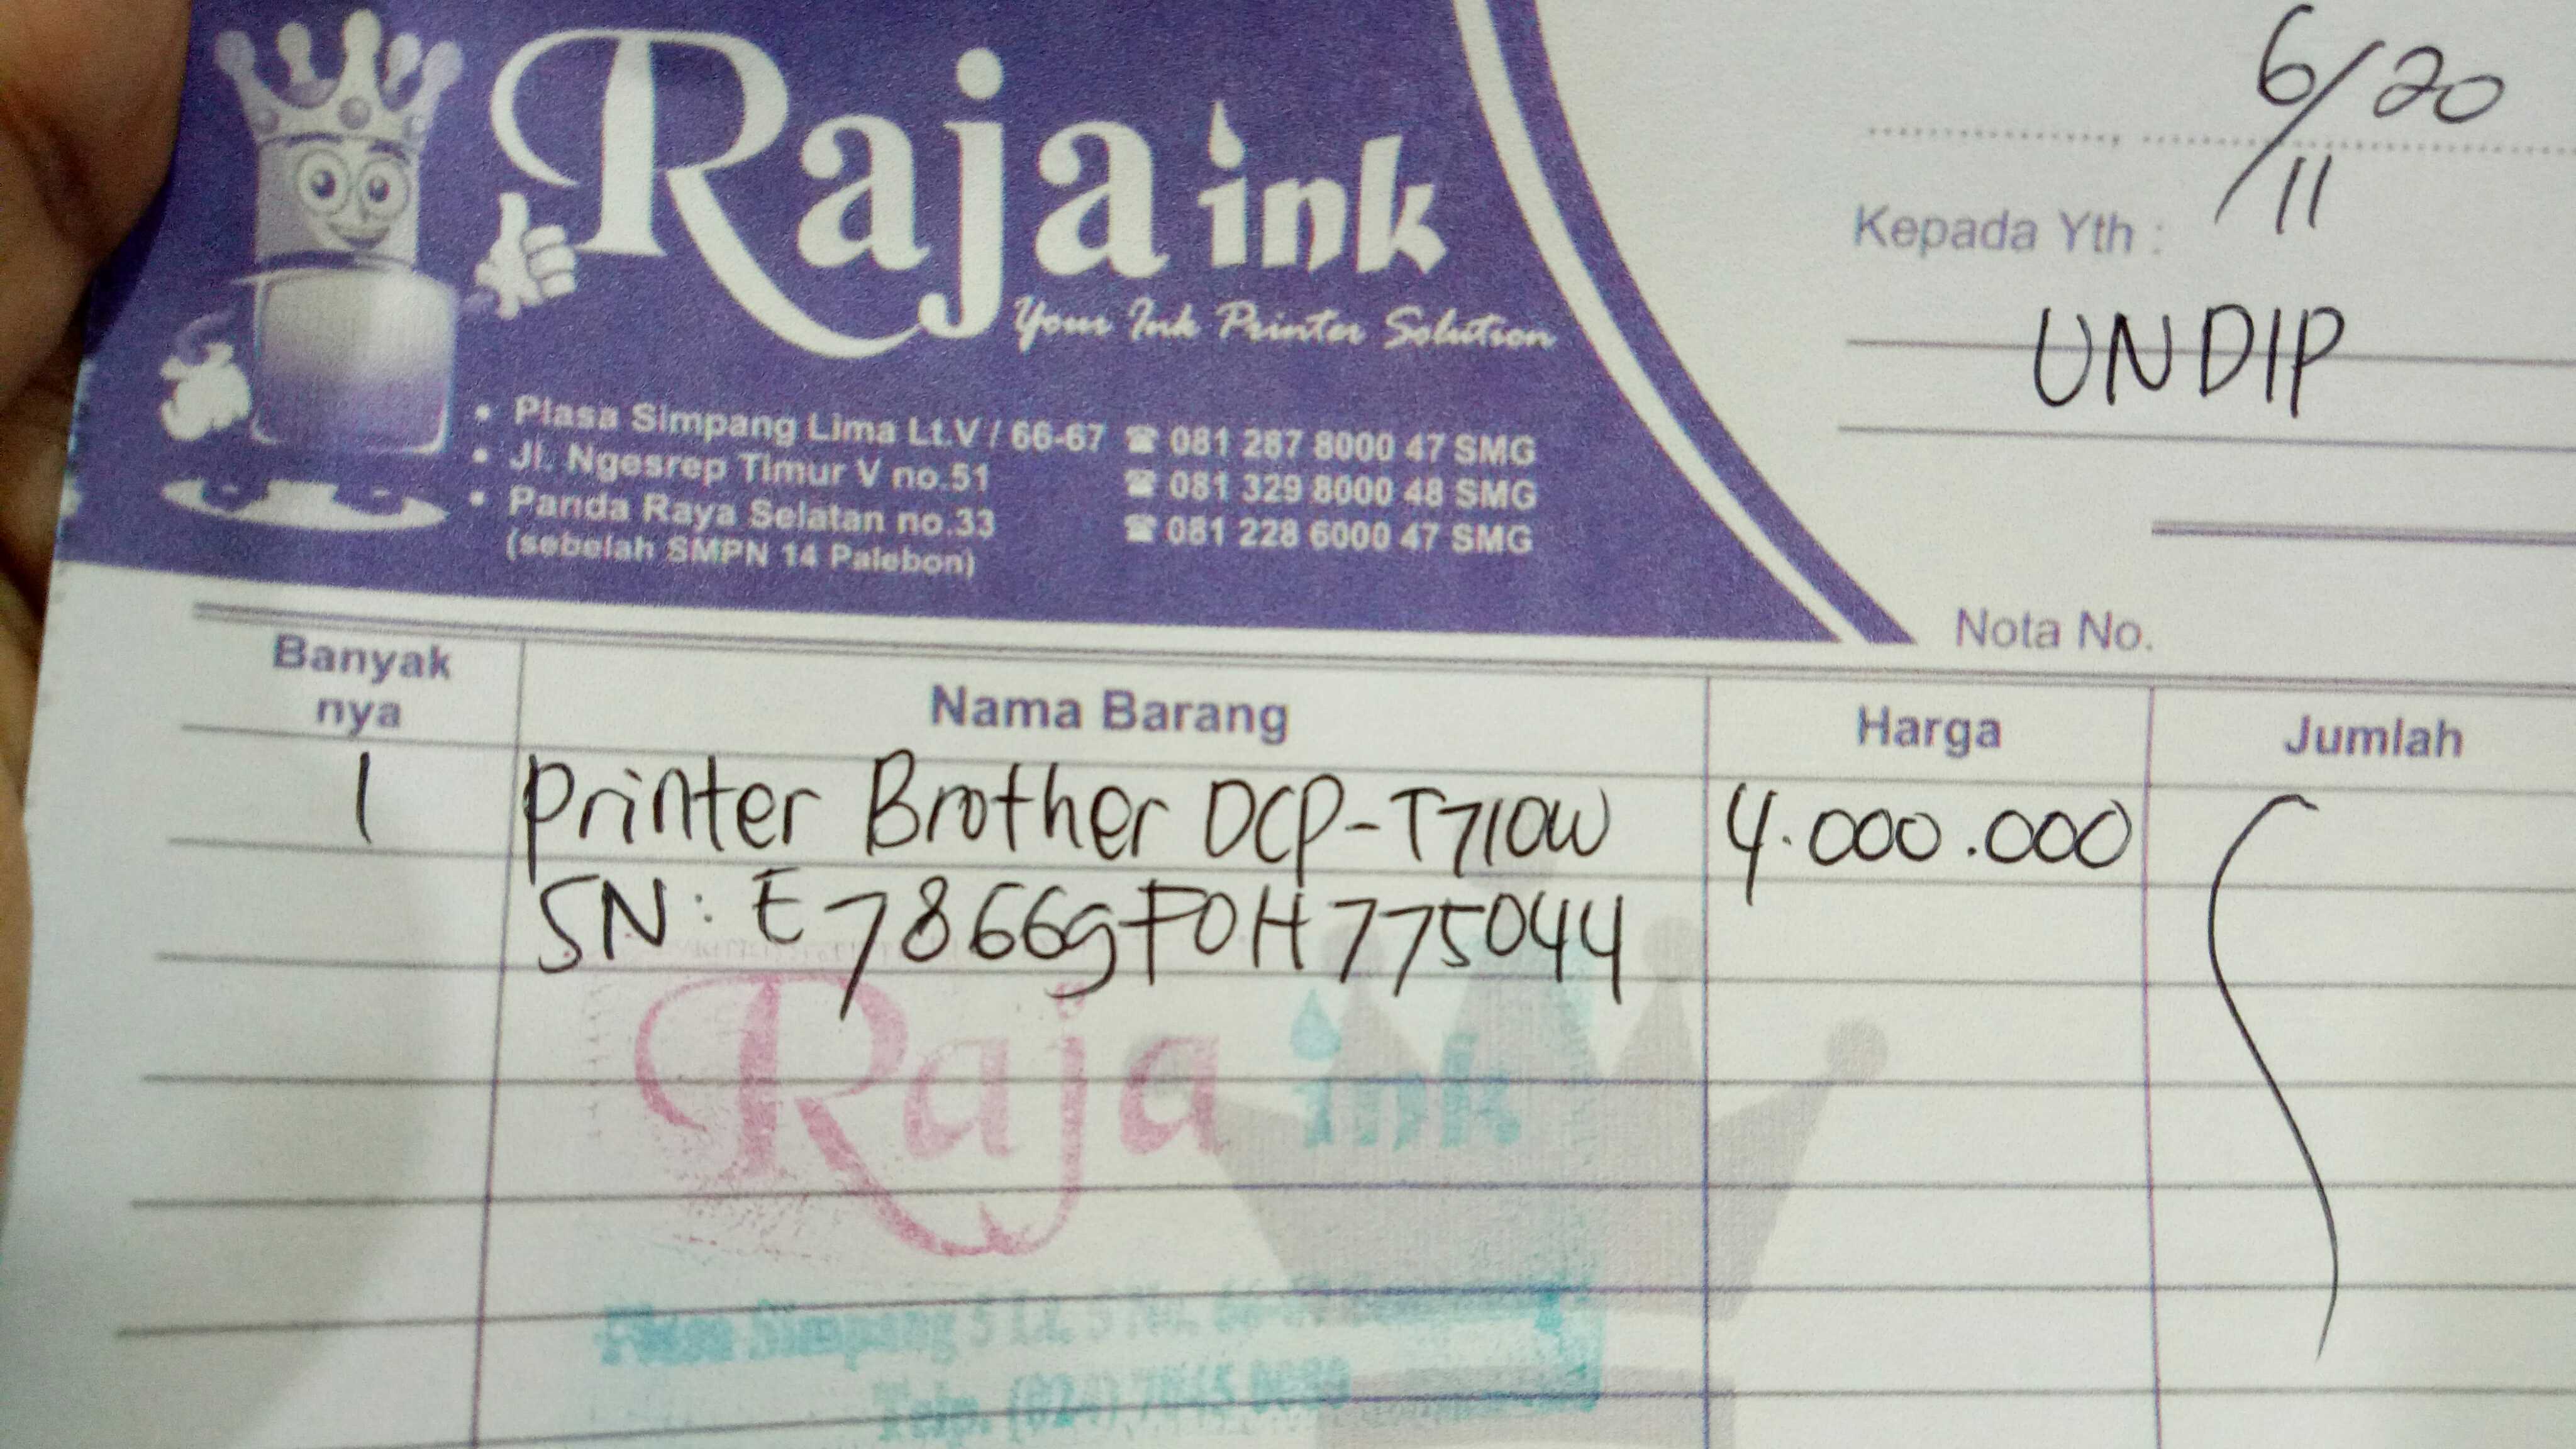 Raja ink
Your Ink Printer Solution
• Plasa Simpang Lima Lt.V / 66-67 ☎ 081 287 8000 47 SMG
• Jl. Ngesrep Timur V no.51 ☎ 081 329 8000 48 SMG
• Panda Raya Selatan no.33 ☎ 081 228 6000 47 SMG
(sebelah SMPN 14 Palebon)
6/11 20
Kepada Yth :
UNDIP
Nota No.
Banyak nya Nama Barang Harga Jumlah
1 Printer Brother DCP-T710W 4.000.000
SN: E78669F0H775044
Raja ink
Plasa Simpang 5 Lt. 5 No.
Telp. (024)